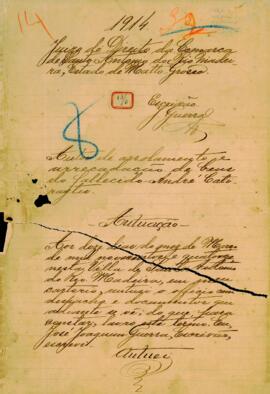 14
1914
Juizo de Direito da Comarca
de Santo Antonio do Rio Madei-
ra, Estado de Matto Grosso
Escrivão
Guerra
8
Autos de arrolamento e
arrecadação de bens
do fallecido André
Autuação
Aos doze dias do mez de
de mil novecentos e quatorze
nesta Villa de Santo Antonio
do Rio Madeira, em meu
cartorio, autuo o officio com
despacho e documentos que
adiante se vê; do que para
constar, lavro este termo. Eu,
José Joaquim Guerra, Escrivão,
escrevi.
Autuei